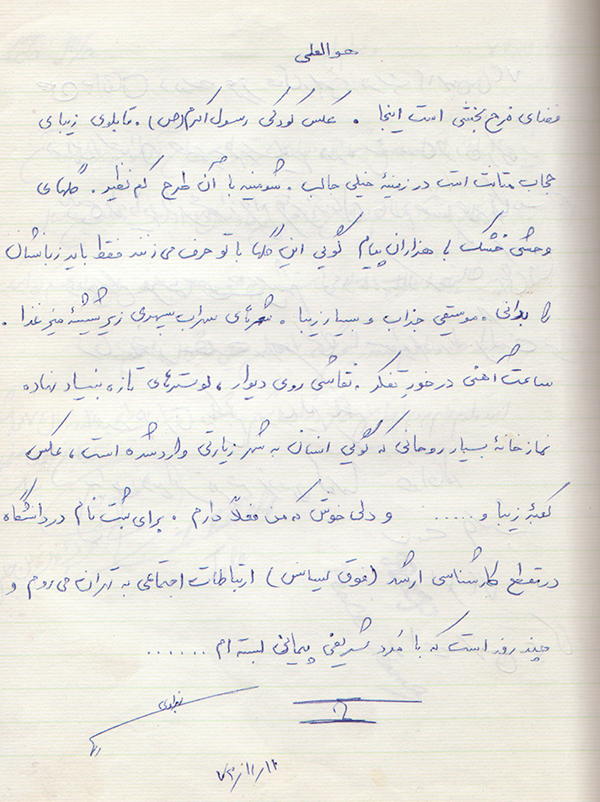 هو العلی
فضای فرح بخشی است اینجا . عکس کودکی رسول اکرم (ص) . تابلوی زیبای
حجاب متانت است در زمینهٔ خیلی جالب . شومینه با آن طرح کم نظیر . گلهای
وحشی خشک با هزاران پیام گویی این گلها با تو حرف می زنند فقط باید زبانشان
را بدانی . موسیقی جذاب و بسیار زیبا . شعرهای سهراب سپهری زیر شیشهٔ میز غذا .
ساعت آهنی در خور تفکر . نقاشی روی دیوار ، لوسترهای تازه بنیاد نهاده
نمازخانهٔ بسیار روحانی که گویی انسان به شهر زیارتی وارد شده است ، عکس
کعبهٔ زیبا و ..... و دلی خوش که من فعلاً دارم . برای ثبت نام در دانشگاه
در مقطع کارشناسی ارشد (فوق لیسانس) ارتباطات اجتماعی به تهران می روم و
چند روز است که با مرد شریفی پیمانی بسته ام .......